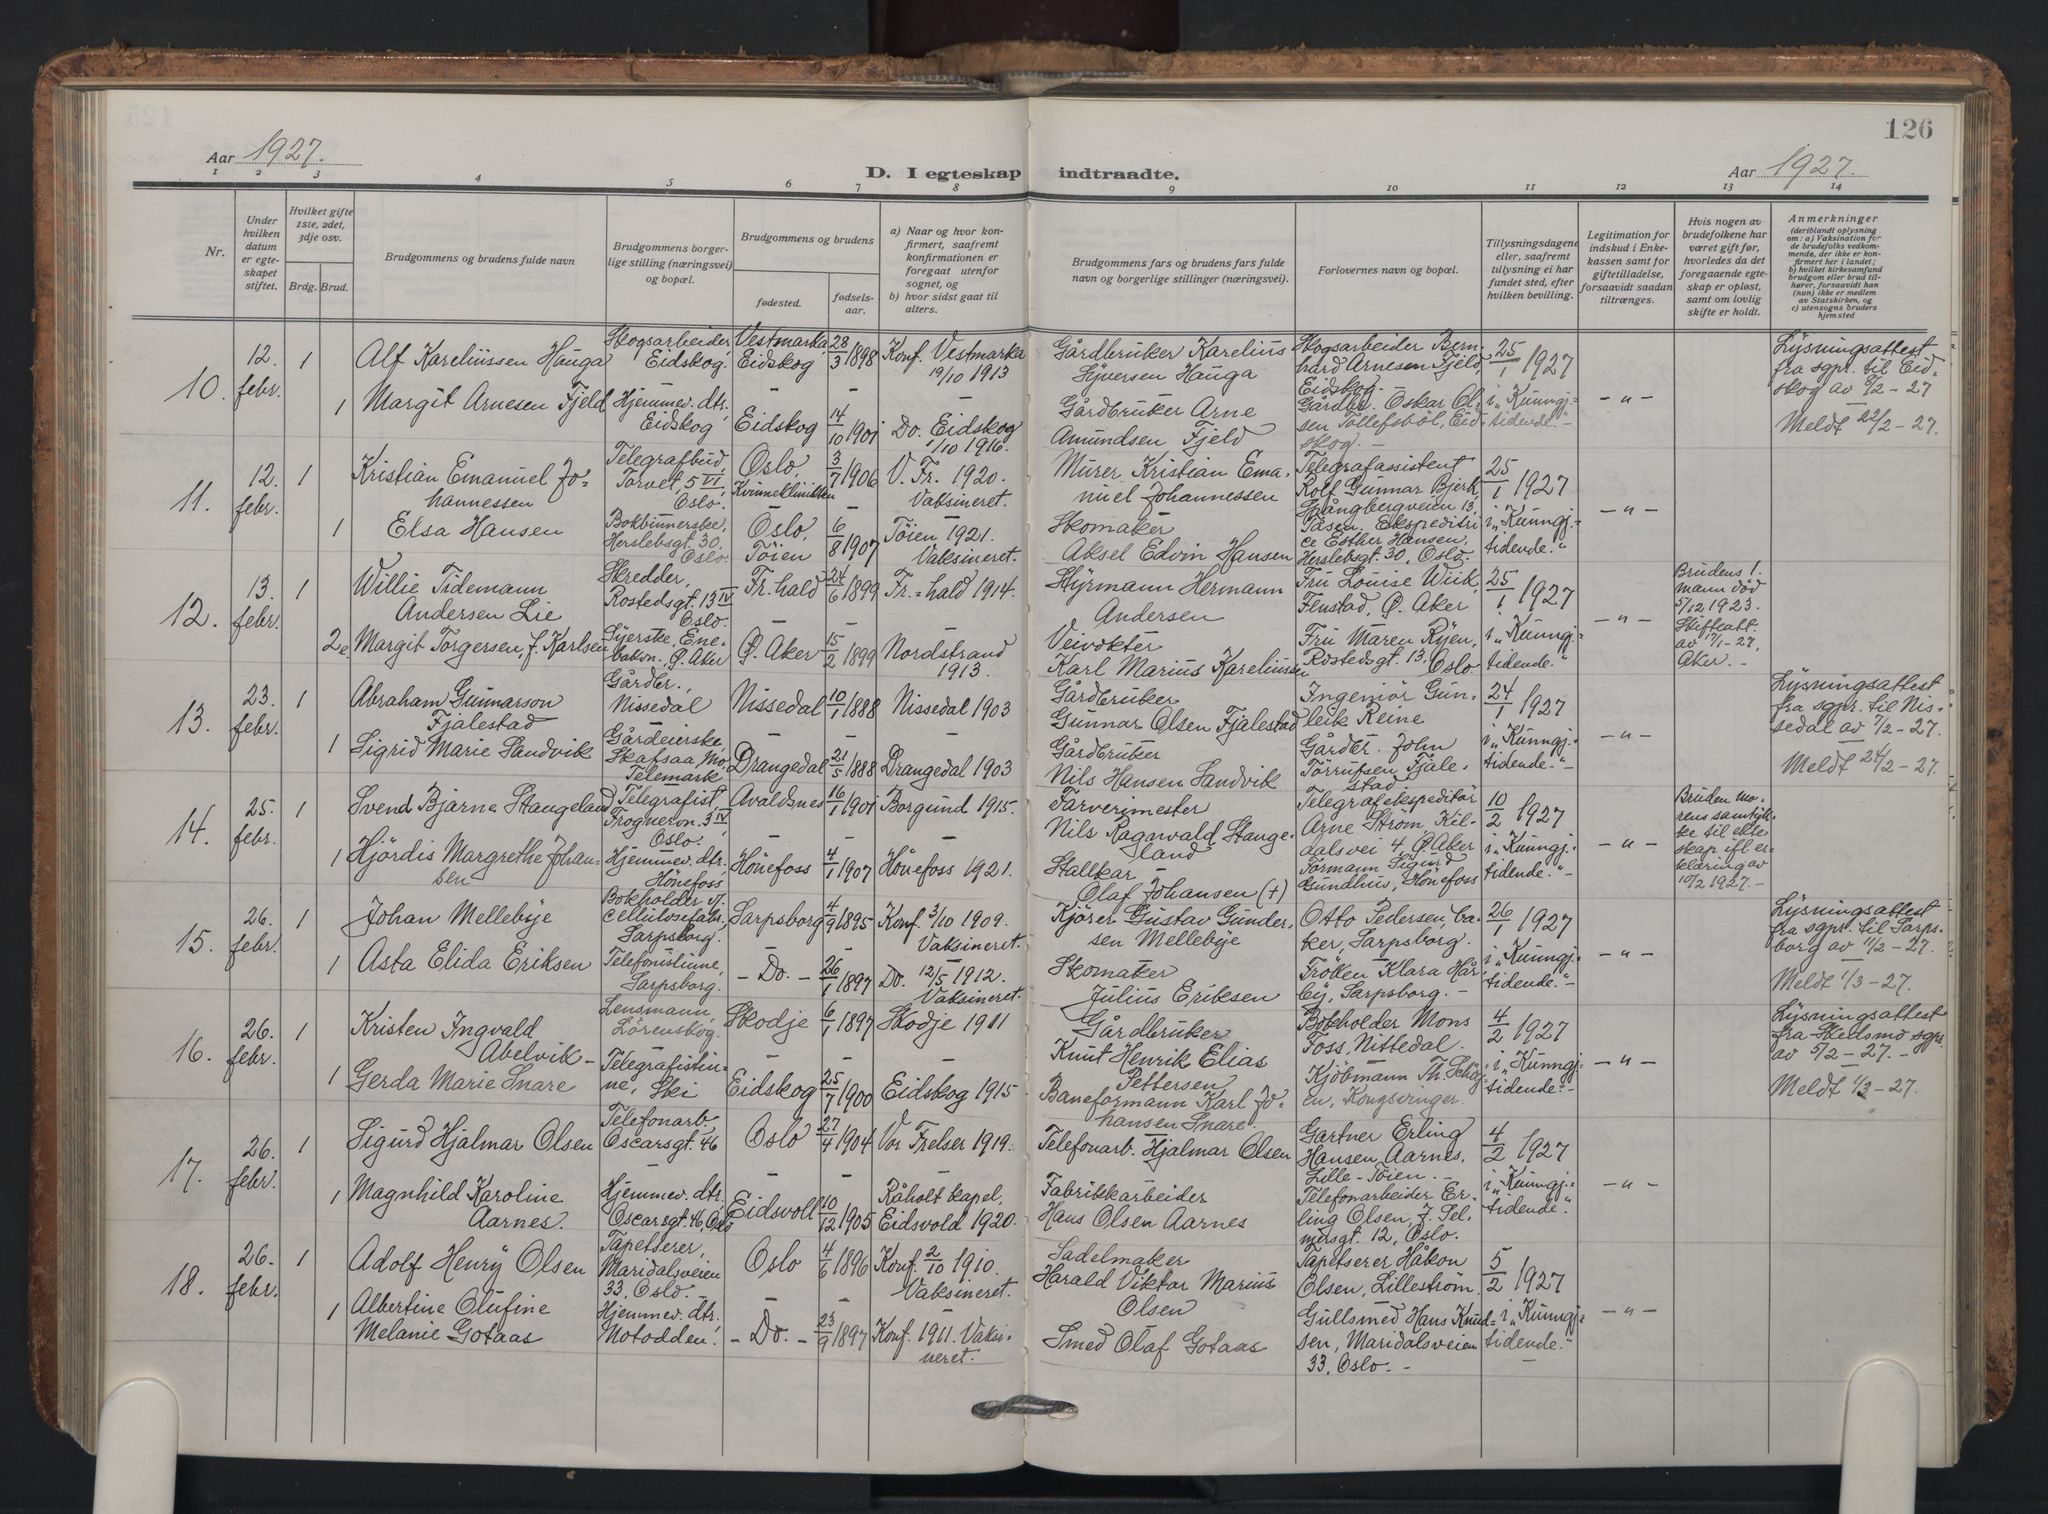 126
Aar 1927.
D. I egteskap indtraadte.
Aar 1927.
1 2 3 4 5 6 7 8 9 10 11 12 13 14
Nr.
Under hvilken datum er egteskapet stiftet.
Hvilket gifte 1ste, 2det, 3dje osv.
Brdg. Brud.
Brudgommens og brudens fulde navn
Brudgommens borgerlige stilling (næringsvei) og bopæl.
Brudgommens og brudens
fødested.
fødselsaar.
a) Naar og hvor konfirmert, saafremt konfirmationen er foregaat utenfor sognet, og
b) hvor sidst gaat til alters.
Brudgommens fars og brudens fars fulde navn og borgerlige stillinger (næringsvei).
Forlovernes navn og bopæl.
Tillysningsdagene eller, saafremt tillysning ei har fundet sted, efter hvilken bevilling.
Legitimation for indskud i Enkekassen samt for giftetilladelse, forsaavidt saadan tiltrænges.
Hvis nogen av brudefolkene har været gift før, hvorledes da det foregaaende egteskap er opløst, samt om lovlig skifte er holdt.
Anmerkninger
(deriblandt oplysning om: a) Vaksination for de brudefolks vedkommende, der ikke er konfirmert her i landet; b) hvilket kirkesamfund brudgom eller brud tilhører, forsaavidt han (hun) ikke er medlem av Statskirken, og c) utensogns bruders hjemsted
10. 12. febr. 1
Alf Kareliussen Hauga
Skogsarbeider, Eidskog.
Vestmarka, Eidskog
28/3 1898
Konf. Vestmarka 19/10 1913
Gårdbruker Karelius Syversen Hauga
Skogsarbeider Bernhard Arnesen Fjeld, Eidskog.
25/1 1927
i „Kunngj.tidende."
- " -
Lysningsattest fra sgpr. til Eidskog av 8/2 - 27
Meldt 22/2 - 27.
1 Margit Arnesen Fjeld
Hjemmev. dtr, Eidskog
Eidskog
14/10 1901
Do. Eidskog 1/10 1916.
Gårdbruker Arne Amundsen Fjeld
Gårdbr. Oskar Olsen Tollefsböl, Eidskog. -
11. 12. febr. 1
Kristian Emanuel Johannessen
Telegrafbud, Torvet 5 VI, Oslo.
Oslo, Kvinneklinikken
3/7 1906
V. Fr. 1920. Vaksineret.
Murer Kristian Emanuel Johannessen
Telegrafassistent Rolf Gunnar Bjerk, Spångbergveien 13, Tåsen.
25/1 1927
i „Kunngj.tidende."
- " -
1 Elsa Hansen
Bokbinnerske, Herslebsgt. 30, Oslo.
Oslo, Töien
6/8 1907
Töien 1921. Vaksineret.
Skomaker Aksel Edvin Hansen
Ekspeditrice Esther Hansen, Herslebsgt. 30, Oslo.
12. 13. febr. 1
Willie Tidemann Andersen Lie
Skredder, Rostedsgt. 13 IV Oslo.
Fr.hald
24/6 1899
Fr.=hald 1914.
Styrmann Hermann Andersen
Fru Louise Wiik, Flustad, Ø. Aker
25/1 1927
i „Kunngj.tidende."
- " -
Brudens 1. mann död 5/12 1923. Skifteatt. av 17/1 - 27, Aker. -
2. Margit Torgersen, f. Karlsen
Syerske, Enebakvn. Ø. Aker
Ø. Aker
15/2 1899
Nordstrand 1913.
Veivokter Karl Marius Kareliussen
Fru Maren Ryen, Rostedsgt. 13, Oslo.
13. 23. febr. 1
Abraham Gunnarson Fjalestad
Gårdbr., Nissedal
Nissedal
10/1 1888
Nissedal 1903
Gårdbruker Gunnar Olsen Fjalestad
Ingeniör Gunleik Reine
24/1 1927
i „Kunngj.tidende."
- " -
Lysningsattest fra sgpr. til Nissedal av 7/2 - 27.
Meldt 24/2 - 27.
1 Sigrid Marie Sandvik
Gårdeierske, Skafsaa, Mo, Telemark
Drangedal
21/5 1888
Drangedal 1903
Gårdbruker Nils Hansen Sandvik
Gårdbr. John Törrufsen Fjalestad
14. 25. febr. 1
Svend Bjarne Stangeland
Telegrafist, Frognervn. 3 IV, Oslo.
Avaldsnes
16/1 1901
Borgund 1915.
Farvermester Nils Ragnvald Stangeland
Telegrafekspeditör Arne Ström, Kildalsvei 4 Ø. Aker
10/2 1927
i „Kunngj.tidende." -
- " -
Bruden morens samtykke til ekteskap ifl. erklæring av 10/2 1927. -
1 Hjördis Margrethe Johansen
Hjemmev. dtr, Hönefoss
Hönefoss
4/1 1907
Hönefoss 1921.
Stallkar Olaf Johansen (+)
Formann Sigurd Gundhus, Hönefoss
15. 26. febr. 1
Johan Mellebye
Bokholder v. cellulosefabr., Sarpsborg.
Sarpsborg
4/9 1895
Konf. 3/10 1909. Vaksineret.
Kjörer Gustav Gundersen Mellebye
Otto Pedersen, baker, Sarpsborg.
26/1 1927
i „Kunngj.tidende."
- " -
Lysningsattest fra sgpr. til Sarpsborg av 11/2 - 27.
Meldt 1/3 - 27.
1 Asta Elida Eriksen
Telefonistinne, Sarpsborg.
- Do. -
26/1 1897
Do. 12/5 1912. Vaksineret.
Skomaker Julius Eriksen
Fröken Klara Hårby, Sarpsborg. -
16. 26. febr. 1
Kristen Ingvald Abelvik -
Lensmann, Lörenskog
Skodje
6/1 1897
Skodje 1911
Gårdbruker Knut Henrik Elias Pettersen
Bokholder Mons Foss, Nittedal.
4/2 1927
i „Kunngj.tidende." -
- " -
Lysningsattest fra Skedsmo sgpr. av 5/2 - 27. -
Meldt 1/3 - 27.
1 Gerda Marie Snare
Telegrafistinne, Ski
Eidskog
25/7 1900
Eidskog 1915
Baneformann Karl Johansen Snare.
Kjöbmann Th. Skøien, Kongsvinger.
17. 26. febr. 1
Sigurd Hjalmar Olsen
Telefonarb. Oscarsgt. 46
Oslo
27/4 1904
Vor Frelser 1919.
Telefonarb. Hjalmar Olsen
Gartner Erling Hansen Aarnes, Lille-Töien. -
4/2 1927
i „Kunngj.tidende."
- " -
1 Magnhild Karoline Aarnes.
Hjemmev. dtr. Oscarsgt. 46, Oslo
Eidsvoll
10/12 1905
Råholt kapel, Eidsvold 1920.
Fabrikkarbeider Hans Olsen Aarnes
Telefonarbeider Erling Olsen, J. Selmersgt. 12, Oslo.
18. 26. febr. 1
Adolf Henry Olsen
Tapetserer, Maridalsveien 33, Oslo.
Oslo
4/6 1896
Konf. 2/10 1910. Vaksineret.
Sadelmaker Harald Viktor Marius Olsen
Tapetserer Håkon Olsen, Lilleström.
5/2 1927
i „Kunngj.tidende."
- " -
1 Albertine Olufine Melanie Gotaas
Hjemmev. dtr. Notodden.
- Do. -
23/9 1897
Konf. 1911. Vaksineret.
Smed Olaf Gotaas
Gullsmed Hans Knudsen, Maridalsveien 33, Oslo. -